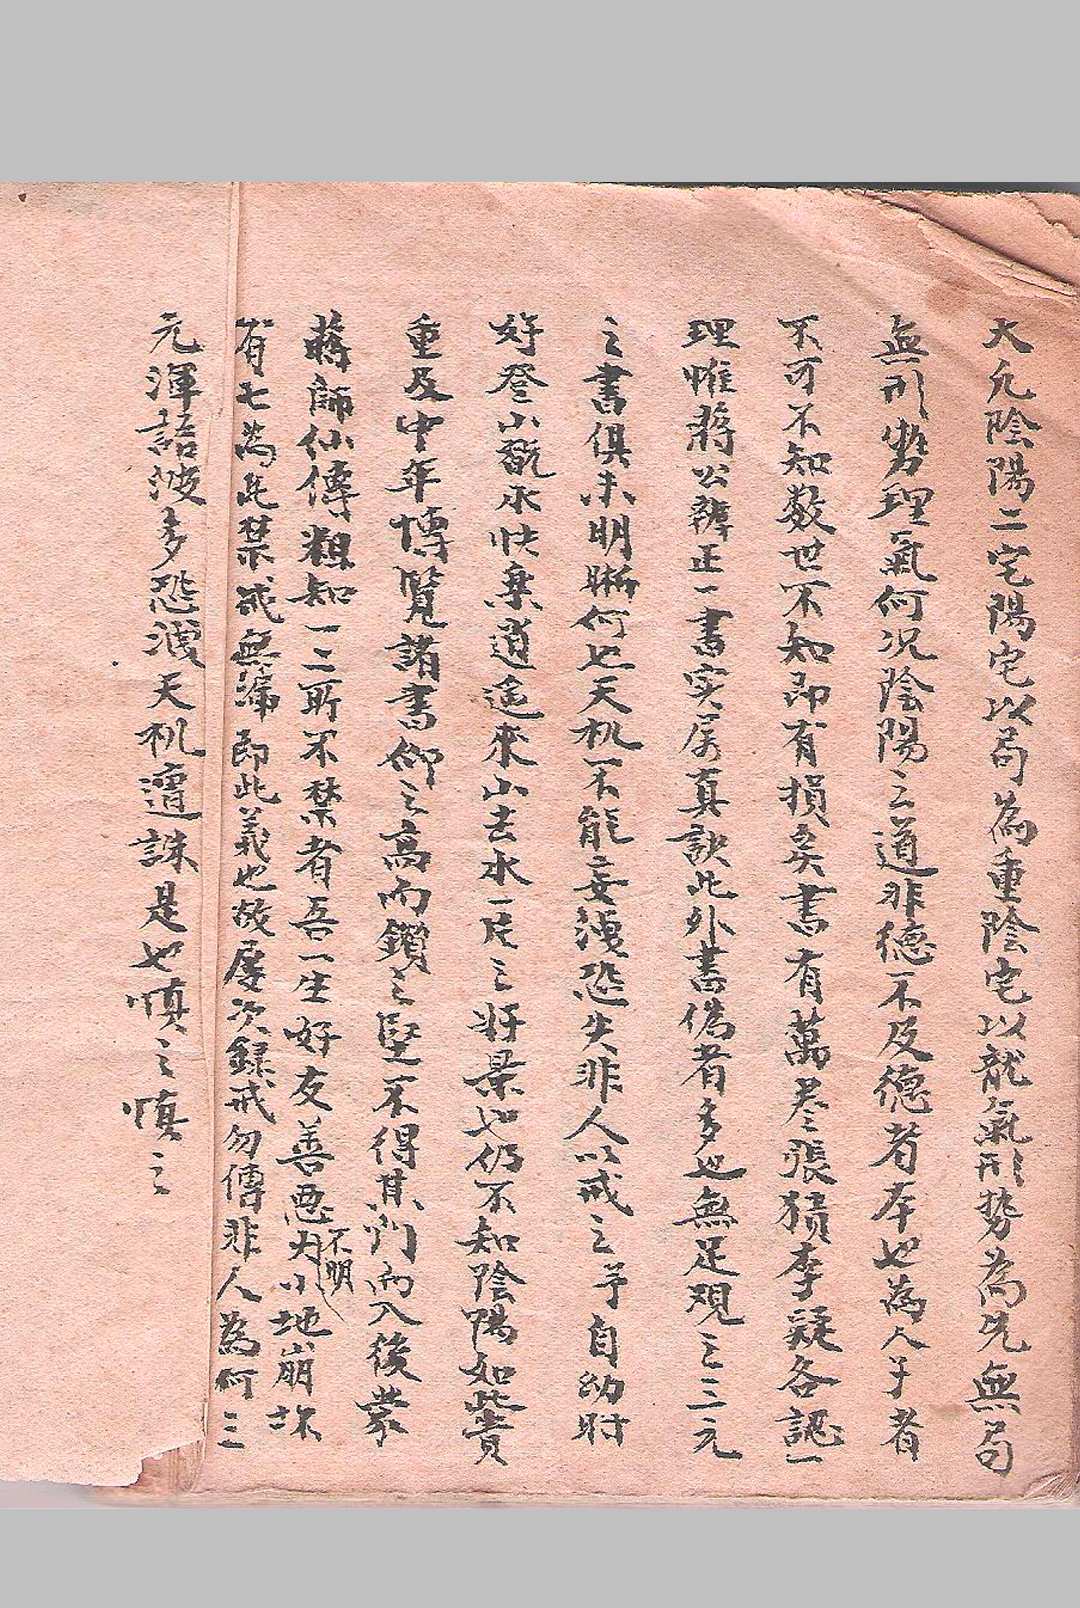 大凡陰陽二宅陽宅以局為重陰宅以龍氣形势為先無局
無形势理氣何况陰陽之道非德不及德者本也為人子者
不可不知数世不知即有損矣書有萬卷張猜李疑各認一
理惟蔣公辨正一書实属真訣此外書偽者多也無足观之三元
之書俱未明晰何也天机不能妄洩恐失非人以戒之予自幼时
好登山翫水快樂逍遥來山去水一片之好景也仍不知陰陽如此貴
重及中年博覧諸書仰之高而鑽之堅不得其门而入後蒙
蔣師仙傳粗知一二所不禁者吾一生好友善悪不明大小地崩坏
有七為此禁戒無漏即此義也故屡次録戒勿傳非人為何三
元渾語波多恐洩天机遭誅是也慎之慎之